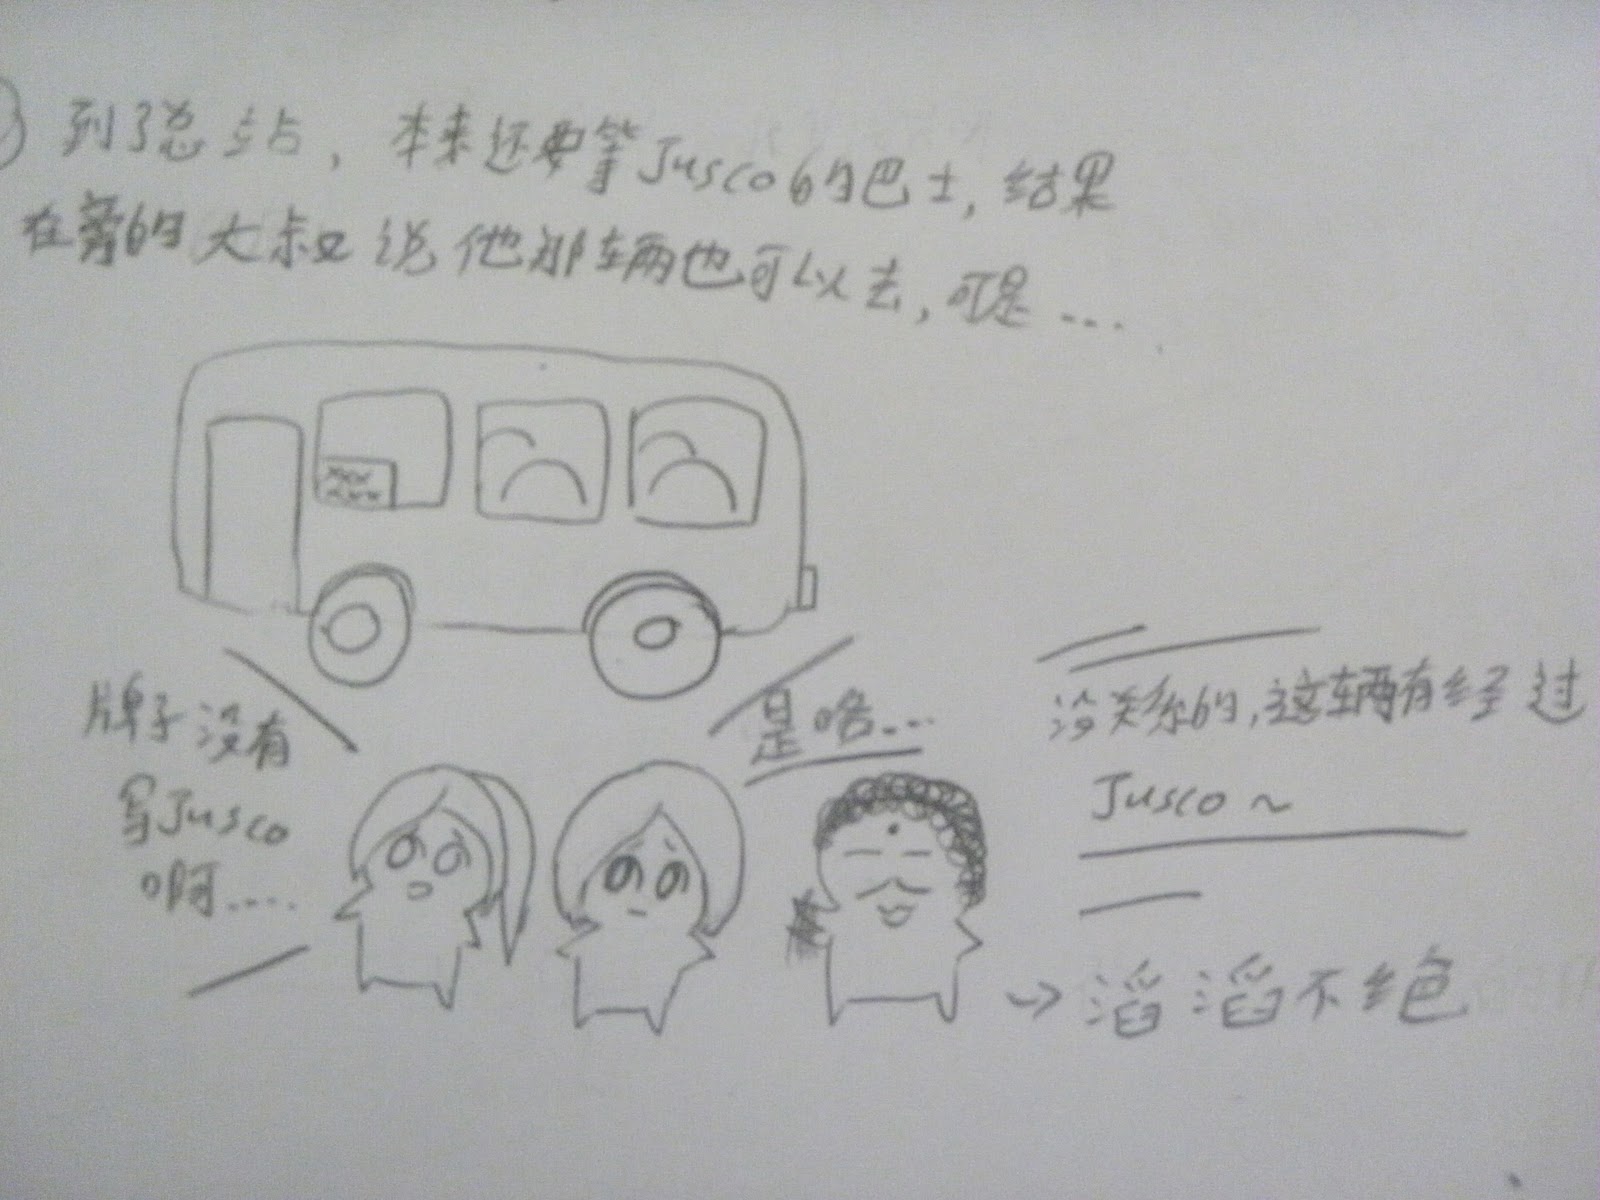 到了总站，本来还要等Jusco的巴士，结果
在旁的大叔说他那辆也可以去，可是....
牌子没有
写Jusco
啊.....
是咯...
没关系的，这辆有经过
Jusco～
→滔滔不绝